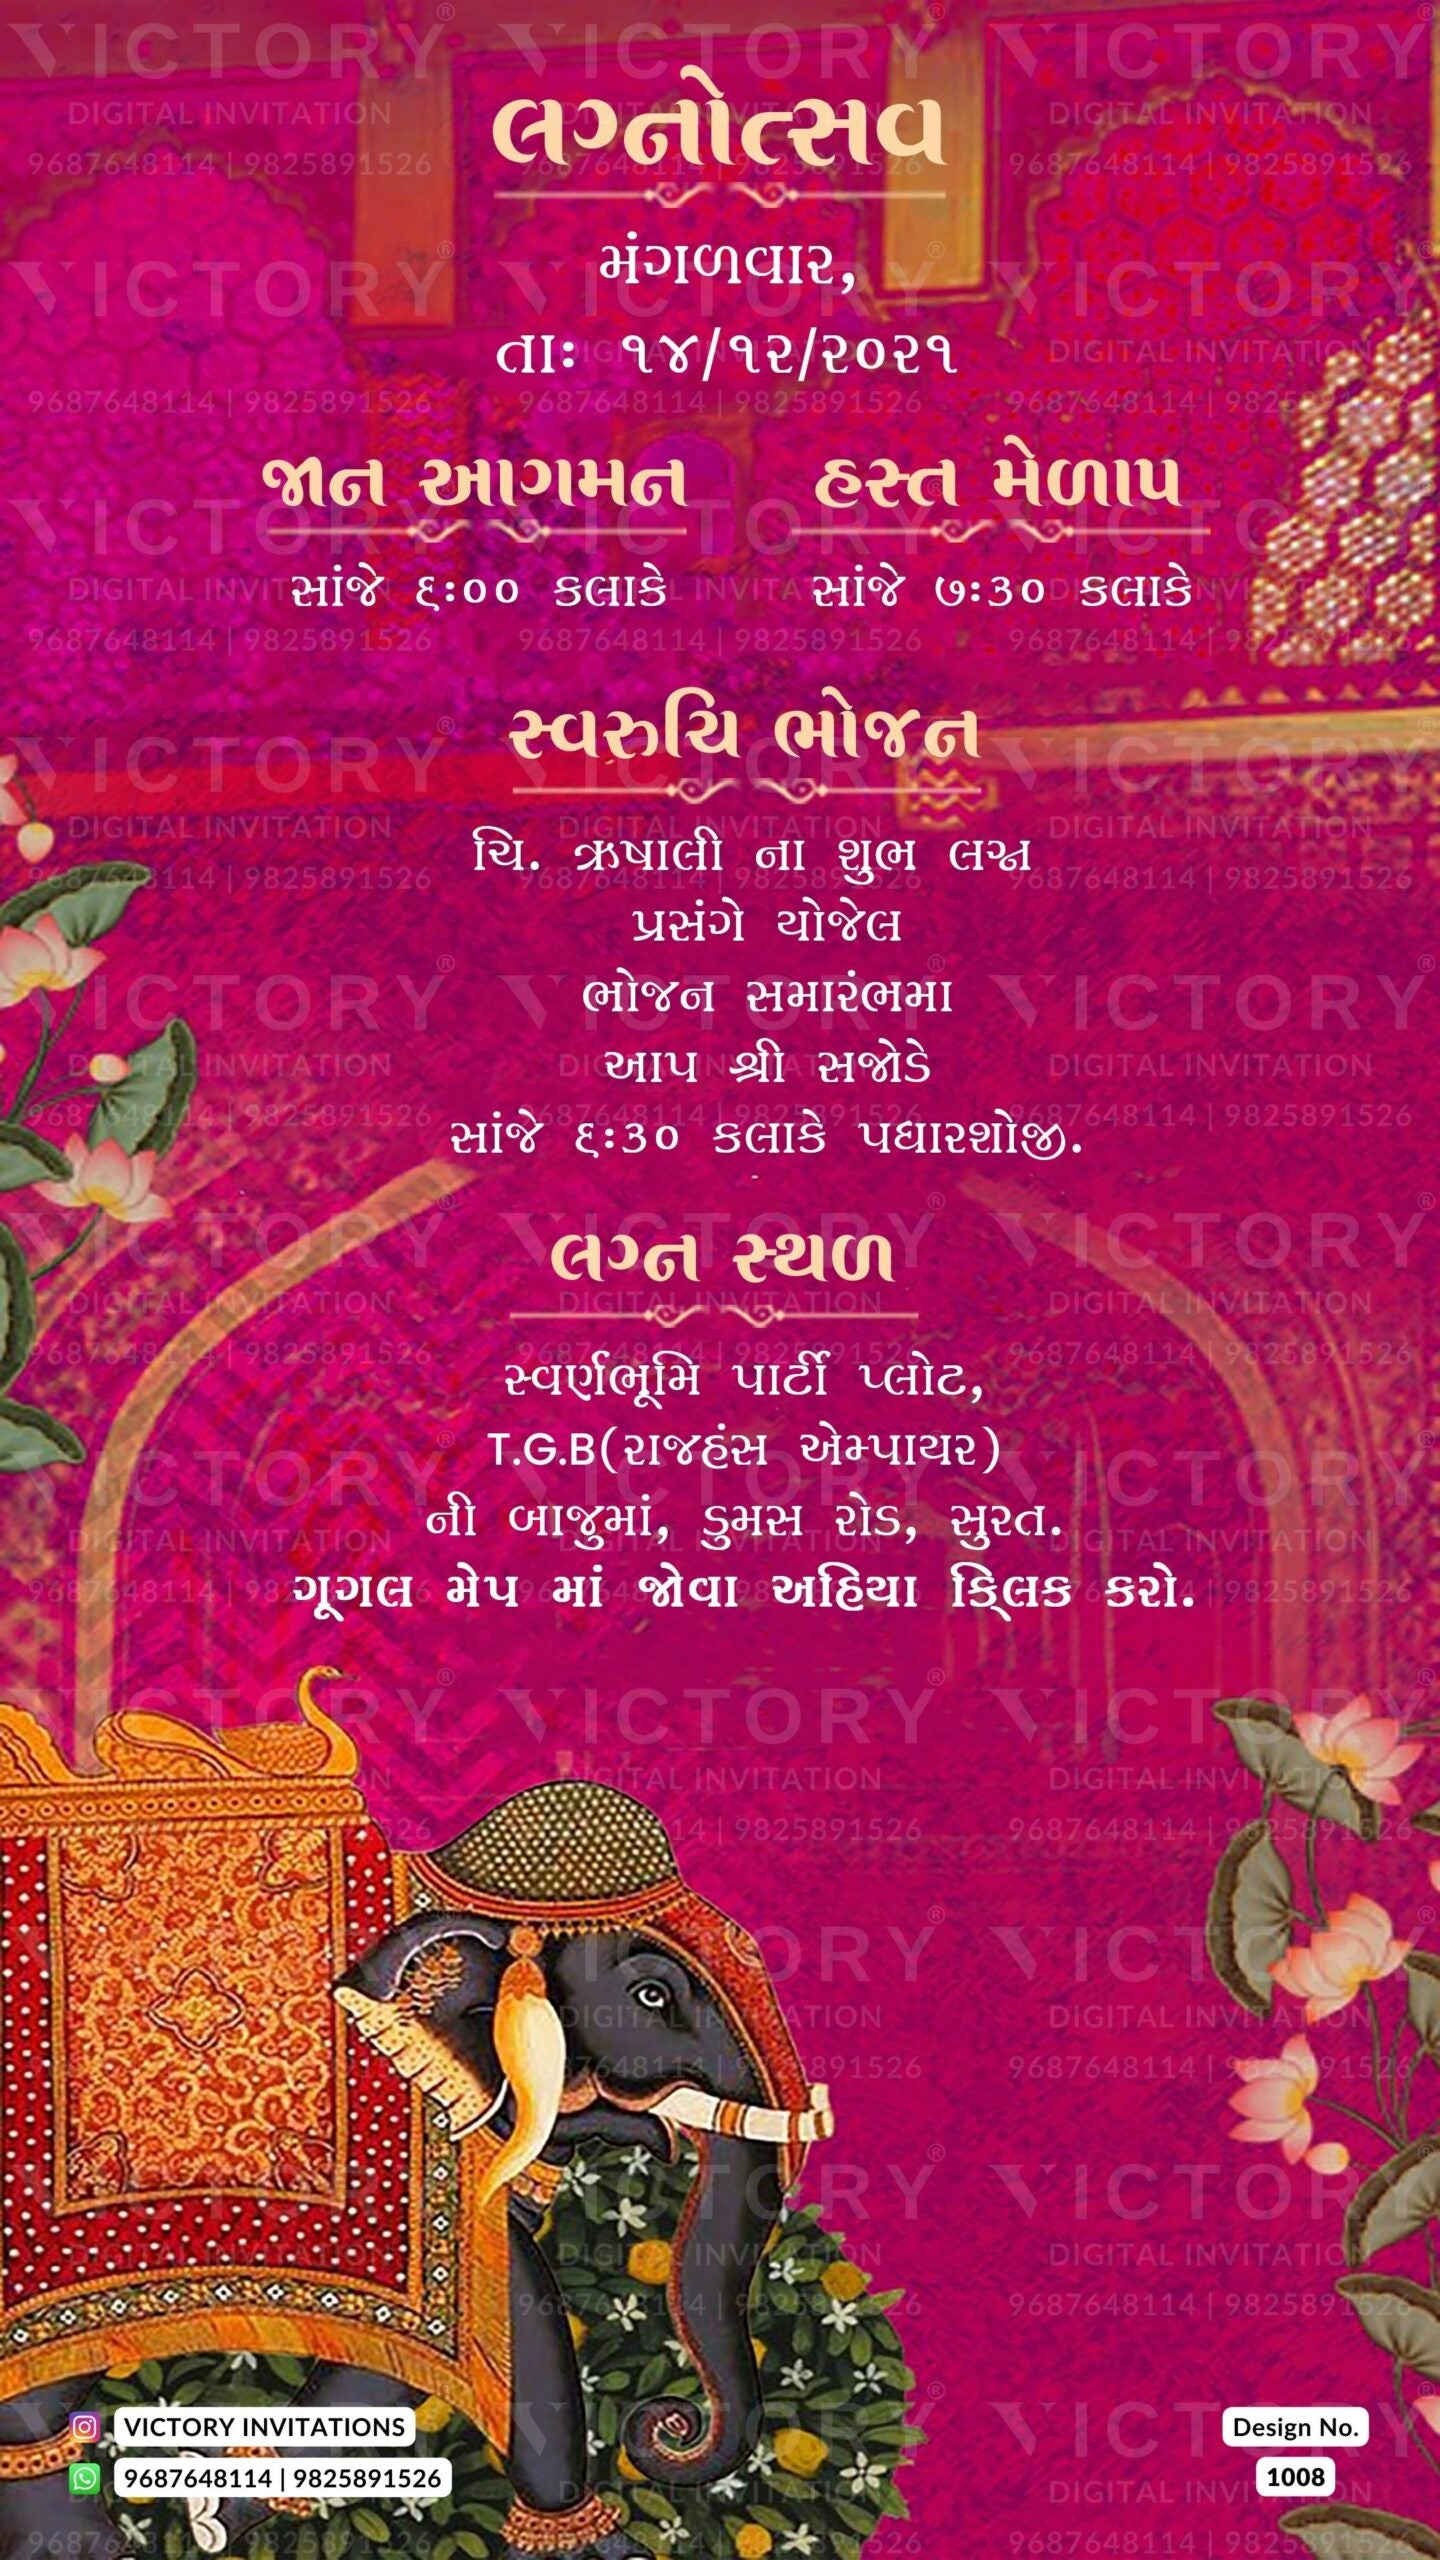 લગ્નોત્સવ
મંગળવાર,
તાઃ ૧૪/૧૨/૨૦૨૧
જાન આગમન
સાંજે ૬ઃ૦૦ કલાકે
હસ્ત મેળાપ
સાંજે ૭ઃ૩૦ કલાકે
સ્વરુચિ ભોજન
ચિ. ઋષાલી ના શુભ લગ્ન
પ્રસંગે યોજેલ
ભોજન સમારંભમા
આપ શ્રી સજોડે
સાંજે ૬ઃ૩૦ કલાકે પધારશોજી.
લગ્ન સ્થળ
સ્વર્ણભૂમિ પાર્ટી પ્લોટ,
T.G.B(રાજહંસ એમ્પાયર)
ની બાજુમાં, ડુમસ રોડ, સુરત.
ગૂગલ મેપ માં જોવા અહિયા ક્લિક કરો.
VICTORY INVITATIONS
9687648114 | 9825891526
Design No.
1008
VICTORY
DIGITAL INVITATION
9687648114 | 9825891526